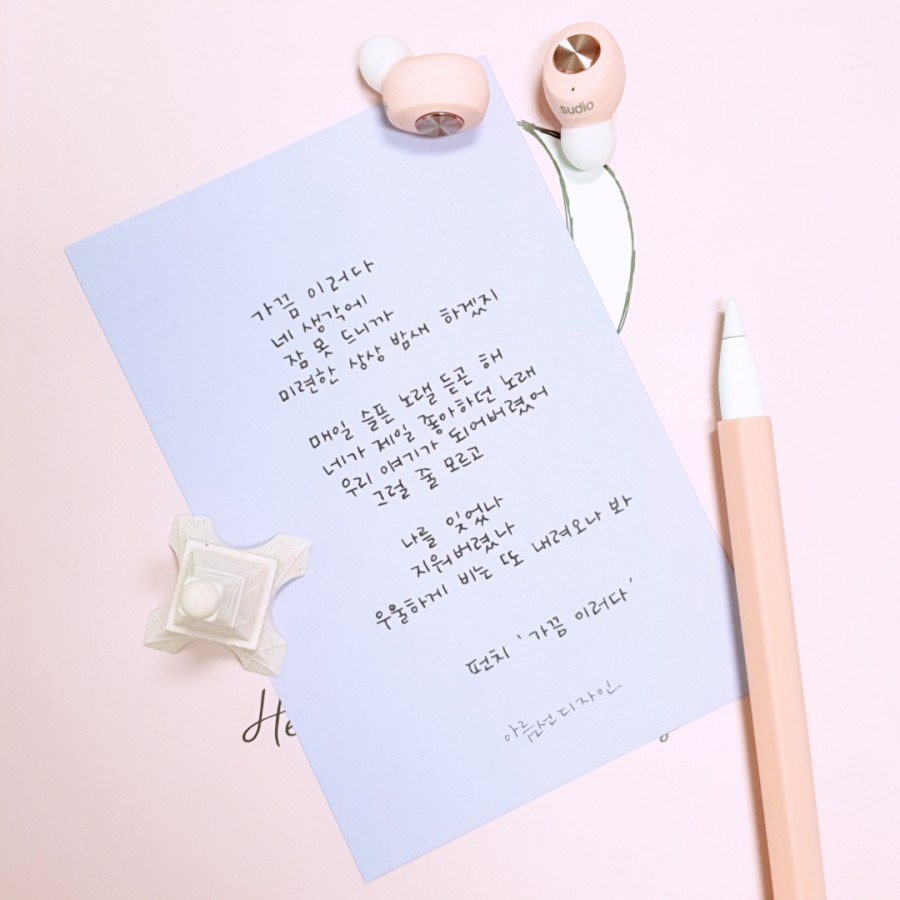 sudio
가끔 이러다
네 생각에
잠 못 드니까
미련한 상상 밤새 하겠지
매일 슬픈 노랠 듣곤 해
네가 제일 좋아하던 노래
우리 얘기가 되어버렸어
그럴 줄 모르고
나를 잊었나
지워버렸나
우울하게 비는 또 내려오나 봐
펀치 '가끔 이러다'
아름선디자인
He